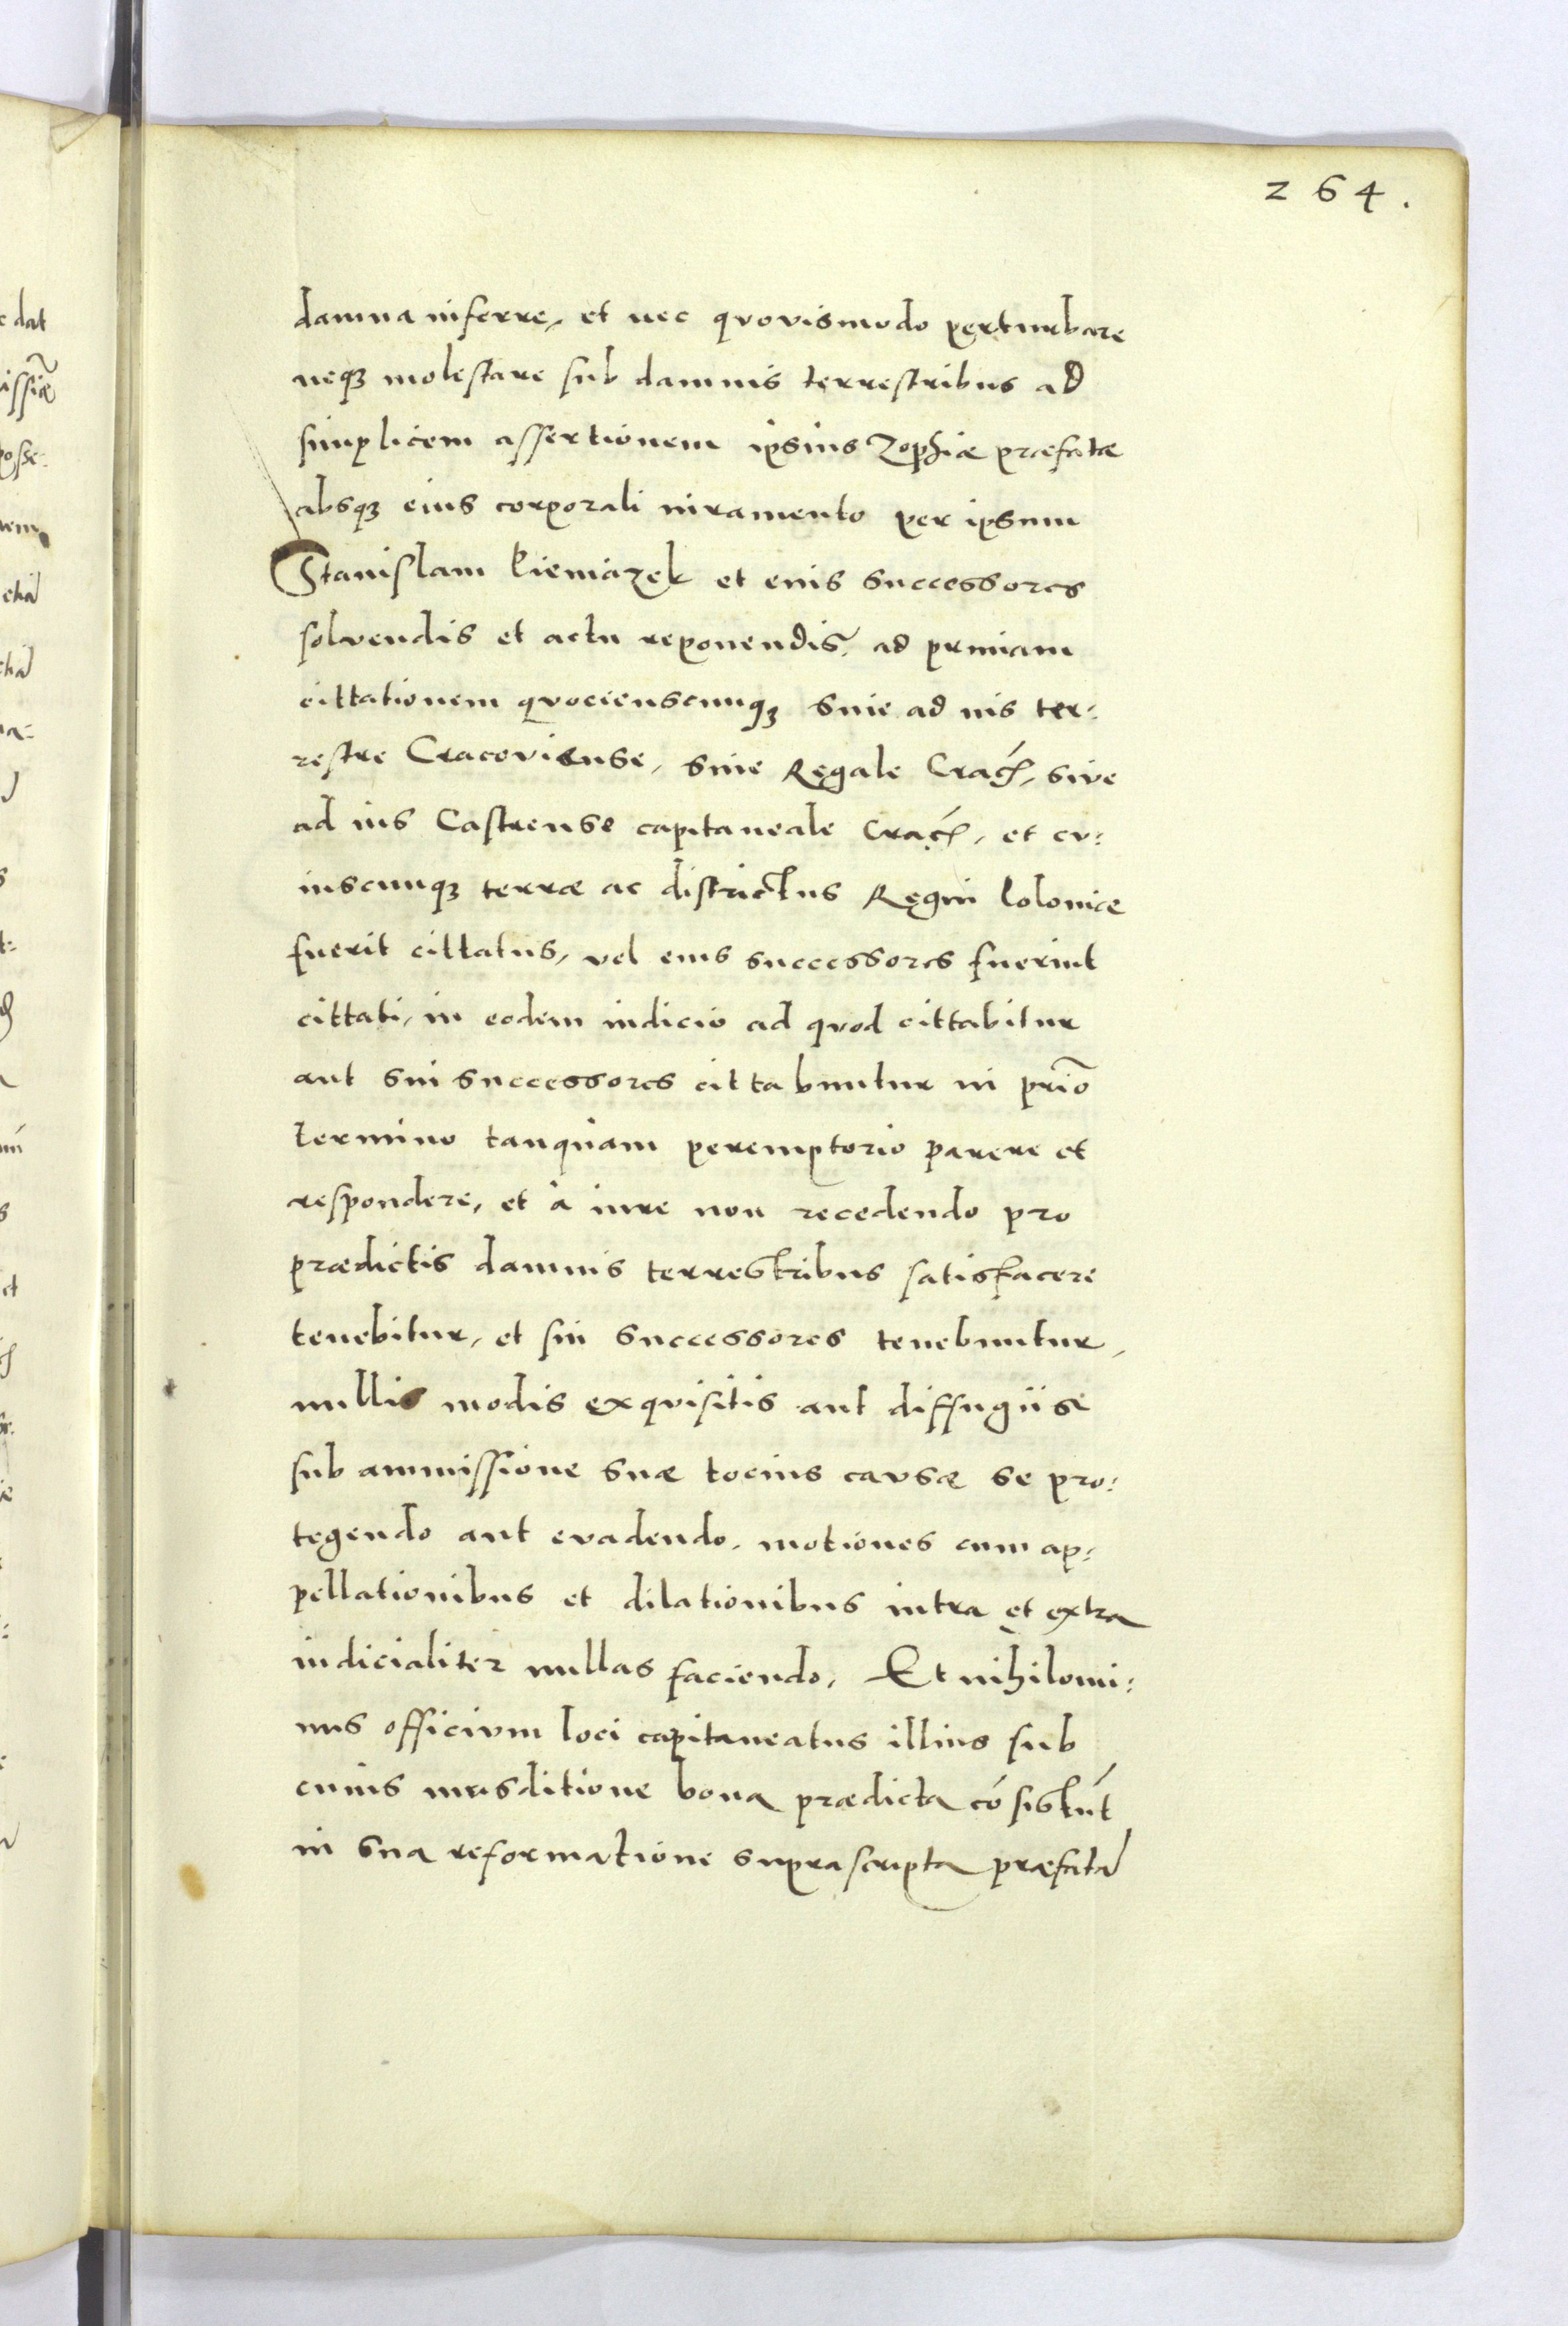 264.
damna inferre, et nec qvovismodo perturbare
neqꝫ molestare sub damnis terrestribus ad
simplicem assertionem ipsius Zophiæ præfatæ
absqꝫ eius corporali iuramento per ipsum
Stanislaum Kiemiazek et euis successores
solvendis et actu reponendis, ad primam
cittationem qvocienscunqꝫ siue ad ius ter:
restre Cracoviense, siue Regale Crac̃, sive
ad ius Castrense capitaneale Crac̃, et cv:
iuscunqꝫ terræ ac districtus Regni Poloniæ
fuerit cittatus, vel eius successores fuerint
cittati, in eodem iudicio ad qvod cittabitur
aut sui successores cittabuntur in prīo
termino tanquam peremptorio parere et
respondere, et à iure non recedendo pro
prædictis damnis terrestribus satisfacere
tenebitur, et sui successores tenebuntur,
nullis modis exqvisitis aut diffugiis
sub ammissione suæ tocius cavsæ se pro:
tegendo aut evadendo, motiones cum ap:
pellationibus et dilationibus intra et extra
iudicialiter nullas faciendo, Et nihilomi:
nus officivm loci capitaneatus illius sub
cuius iurisditione bona prædicta cō sistūt
in sua reformatione suprascripta præfatā